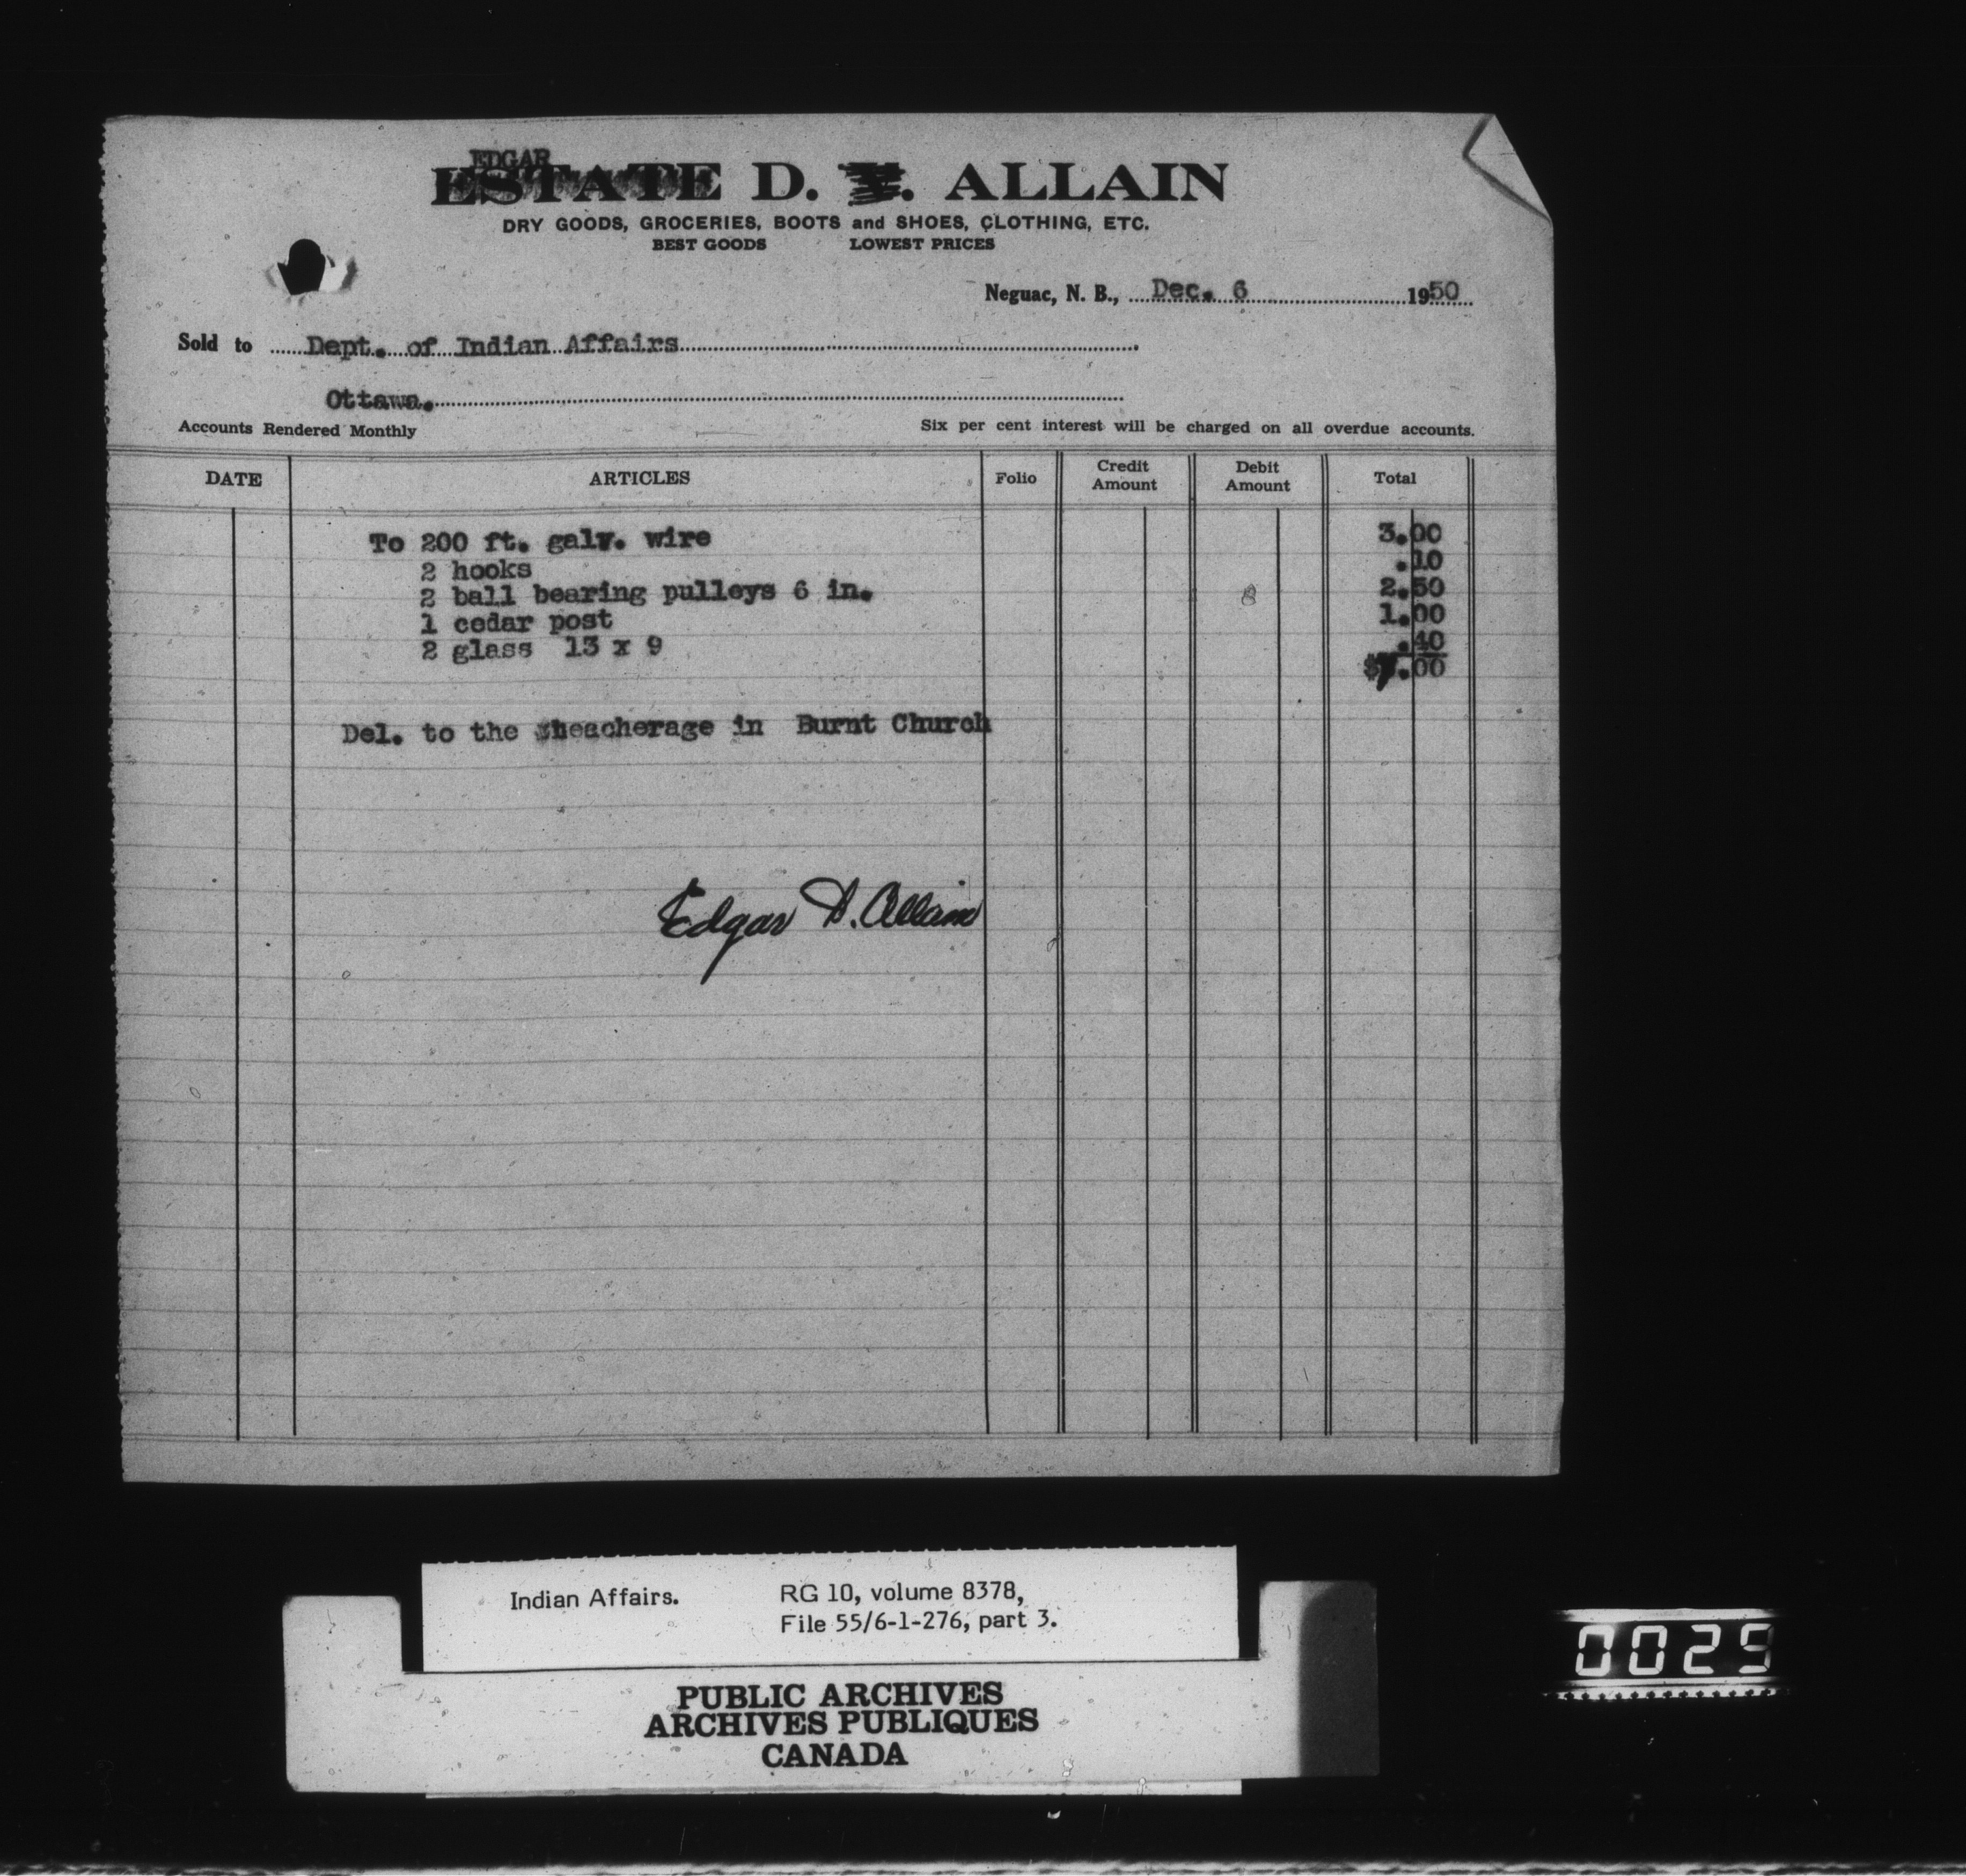 EDGAR
ESTATE D. Y. ALLAIN
DRY GOODS, GROCERIES, BOOTS and SHOES, CLOTHING, ETC.
BEST GOODS LOWEST PRICES
Neguac, N. B., Dec. 6 1950
Sold to Dept. of Indian Affairs
Ottawa.
Accounts Rendered Monthly Six per cent interest will be charged on all overdue accounts.
DATE ARTICLES Folio Credit Amount Debit Amount Total
To 200 ft. galv. wire 3.00
2 hooks .10
2 ball bearing pulleys 6 in. 2.50
1 cedar post 1.00
2 glass 13 x 9 .40
$7.00
Del. to the teacherage in Burnt Church
Edgar D. Allain
Indian Affairs. RG 10, volume 8378,
File 55/6-1-276, part 3.
PUBLIC ARCHIVES
ARCHIVES PUBLIQUES
CANADA
0025